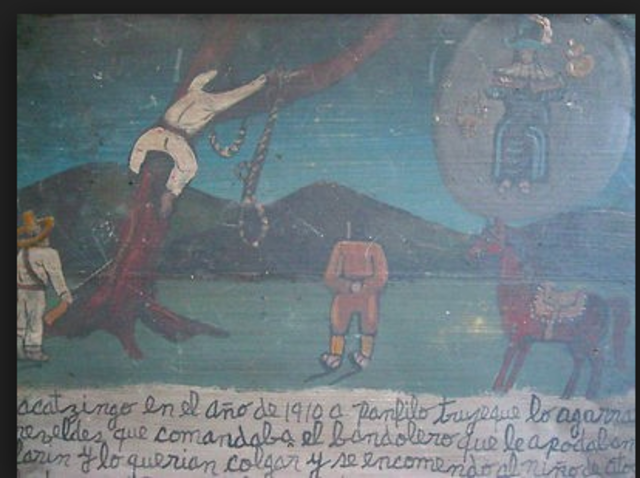 acatzingo en el año de 1910 a panfilo trujeque lo agarra
reveldes que comandaba el bandolero que le apodaban
larin y lo querian colgar y se encomendo al niño de ato